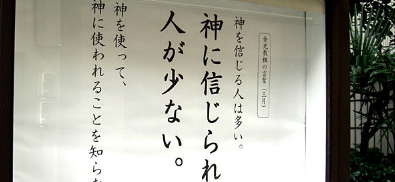 金光教祖の言葉（三月）
神を信じる人は多い。
神に信じられ
人が少ない。
神を使って、
神に使われることを知らな